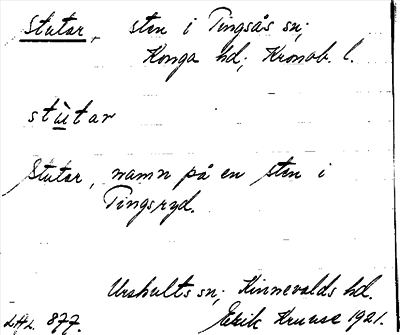 Stutar, sten i Tingsås sn;
Konga hd; Kronob. l.
stùtar
Stutar, namn på en sten i
Tingsryd.
Urshults sn; Kinnevalds hd.
877. Erik Kruuse 1921.